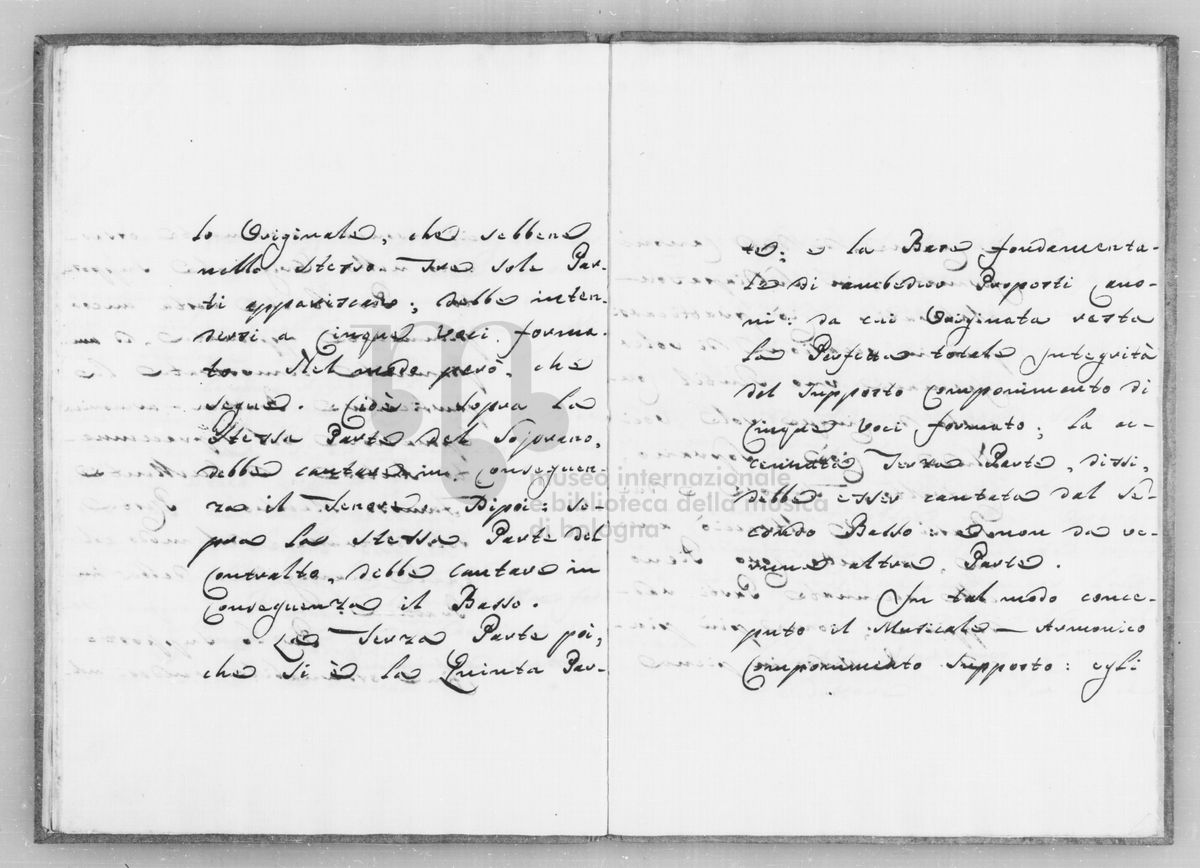 lo Originale, che sebbene
nello stesso Tre sole Par-
ti appariscano; debbe inten-
dersi a Cinque Voci forma-
to. Nel modo però, che
segue. Cioè: Sopra la
Stessa Parte del Soprano,
debbe cantare in Conseguen-
za il Tenore. Dipoi: so-
pra la stessa Parte del
Contralto, debbe cantare in
Conseguenza il Basso.
La Terza Parte poi,
che si è la Quinta Par-
te; e la Base fondamenta-
le di ambedue Proposti Cano-
ni: da cui Originata resta
la Perfetta totale Integrità
del Supposto Componimento di
Cinque Voci formato; la ac-
cennata Terza Parte, dissi,
debbe esser cantata dal Se-
condo Basso: e non da ve-
run' altra Parte.
In tal modo conce-
puto il Musicale-Armonico
Componimento Supposto: egli
museo internazionale
e biblioteca della musica
di bologna